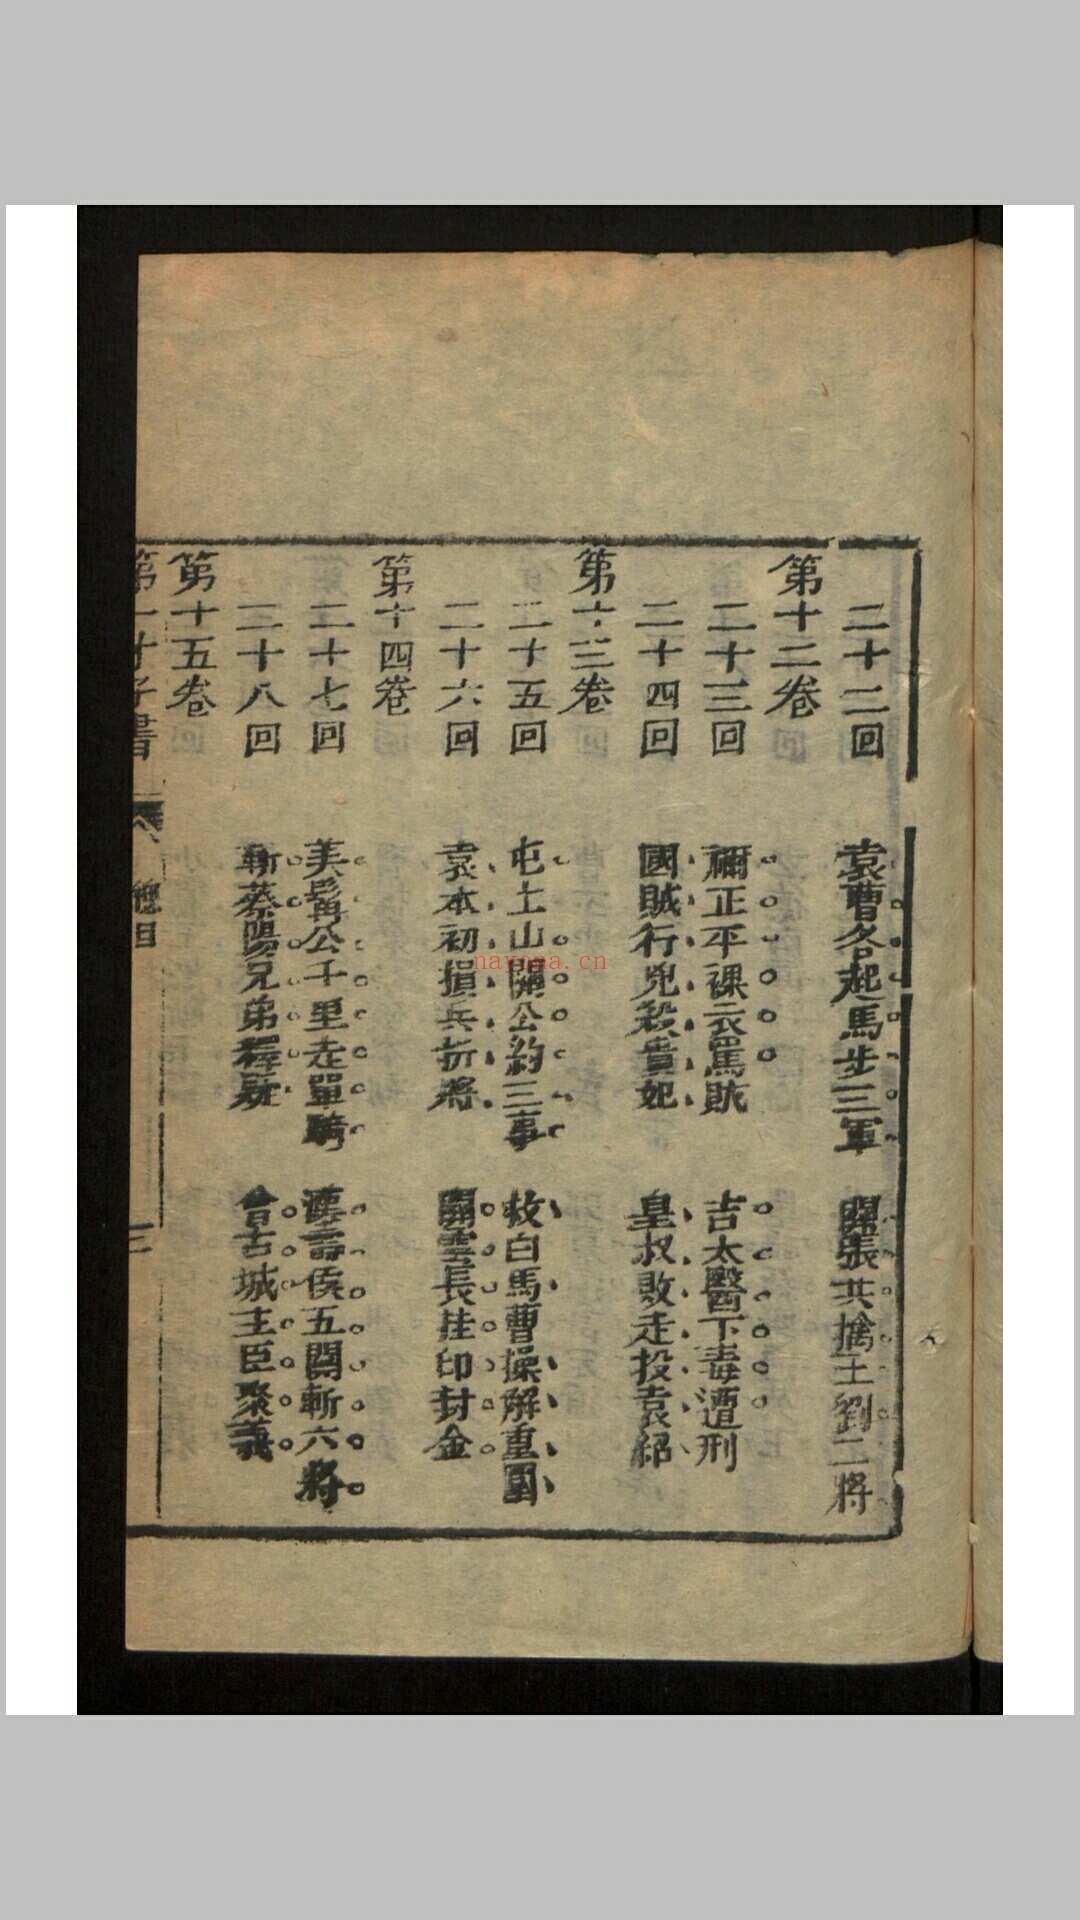 二十二回 袁曹各起馬步三軍 關張共擒王劉二將
第十二卷
二十三回 禰正平裸衣罵賊 吉太醫下毒遭刑
二十四回 國賊行兇殺貴妃 皇叔敗走投袁紹
第十三卷
二十五回 屯土山關公約三事 救白馬曹操解重圍
二十六回 袁本初損兵折將 關雲長挂印封金
第十四卷
二十七回 美髯公千里走單騎 漢壽侯五關斬六將
二十八回 斬蔡陽兄弟釋疑 會古城主臣聚義
第十五卷
第一才子書 總目 三
nayona.cn